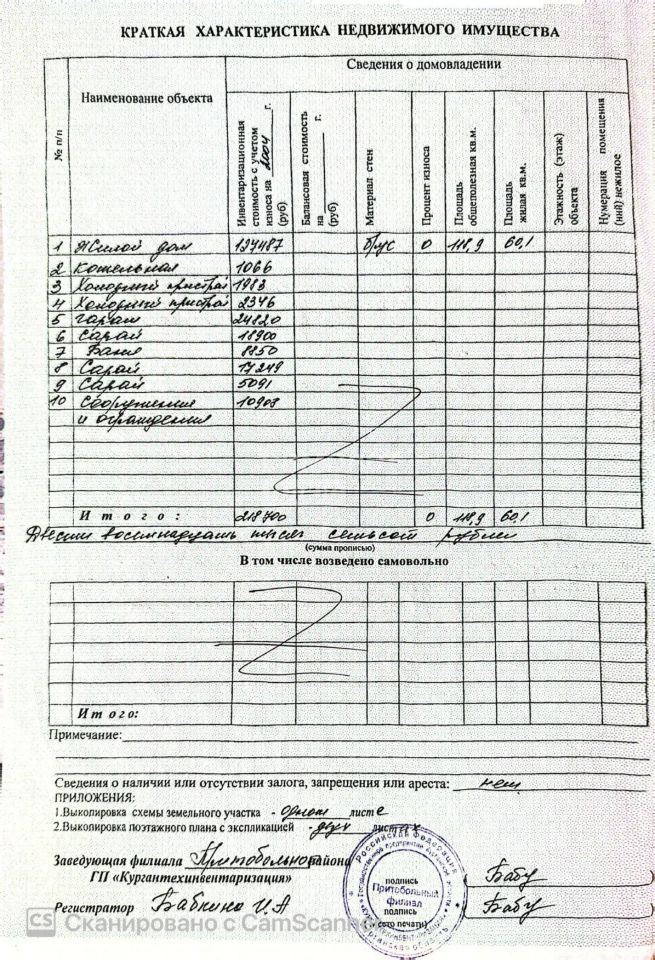 КРАТКАЯ ХАРАКТЕРИСТИКА НЕДВИЖИМОГО ИМУЩЕСТВА
№ п/п
Наименование объекта
Сведения о домовладении
Инвентаризационная стоимость с учетом износа на 2004 г. (руб)
Балансовая стоимость на г. (руб)
Материал стен
Процент износа
Площадь общеполезная кв.м.
Площадь жилая кв.м.
Этажность (этаж) объекта
Нумерация помещения (ний) нежилое
1 Жилой дом брус 0 118,9 60,1
2 Котельная 1066
3 Холодный пристрой 1983
4 Холодный пристрой 2346
5 Гараж 24820
6 Сарай 18900
7 Баня 8850
8 Сарай 17249
9 Сарай 5091
10 Сооружения 10908
и ограждения
Итого: 218700 0 118,9 60,1
Двести восемнадцать тысяч семьсот рублей
(сумма прописью)
В том числе возведено самовольно
Итого:
Примечание:
Сведения о наличии или отсутствии залога, запрещения или ареста: нет
ПРИЛОЖЕНИЯ:
1.Выкопировка схемы земельного участка - одном листе
2.Выкопировка поэтажного плана с экспликацией - двух листах
Заведующая филиала Притобольного района
ГП «Кургантехинвентаризация»
подпись
Притобольный
филиал
подпись
(место печати)
Российская Федерация
Курганская область
Регистратор Бабкина И.А
CS Сканировано с CamScanner